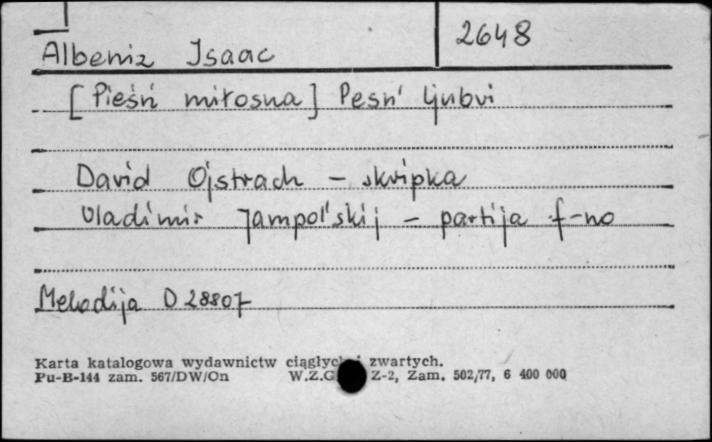 2648
Albeniz Isaac
[Pieśń miłosna] Pesn' ljubvi
David Ojstrach – skripka
Vladimir Jampol'skij – partija f-no
Melodija D 28807
Karta katalogowa wydawnictw ciągłych i zwartych.
Pu-B-144 zam. 567/DW/On W.Z.G Z-2, Zam. 502/77, 6 400 000